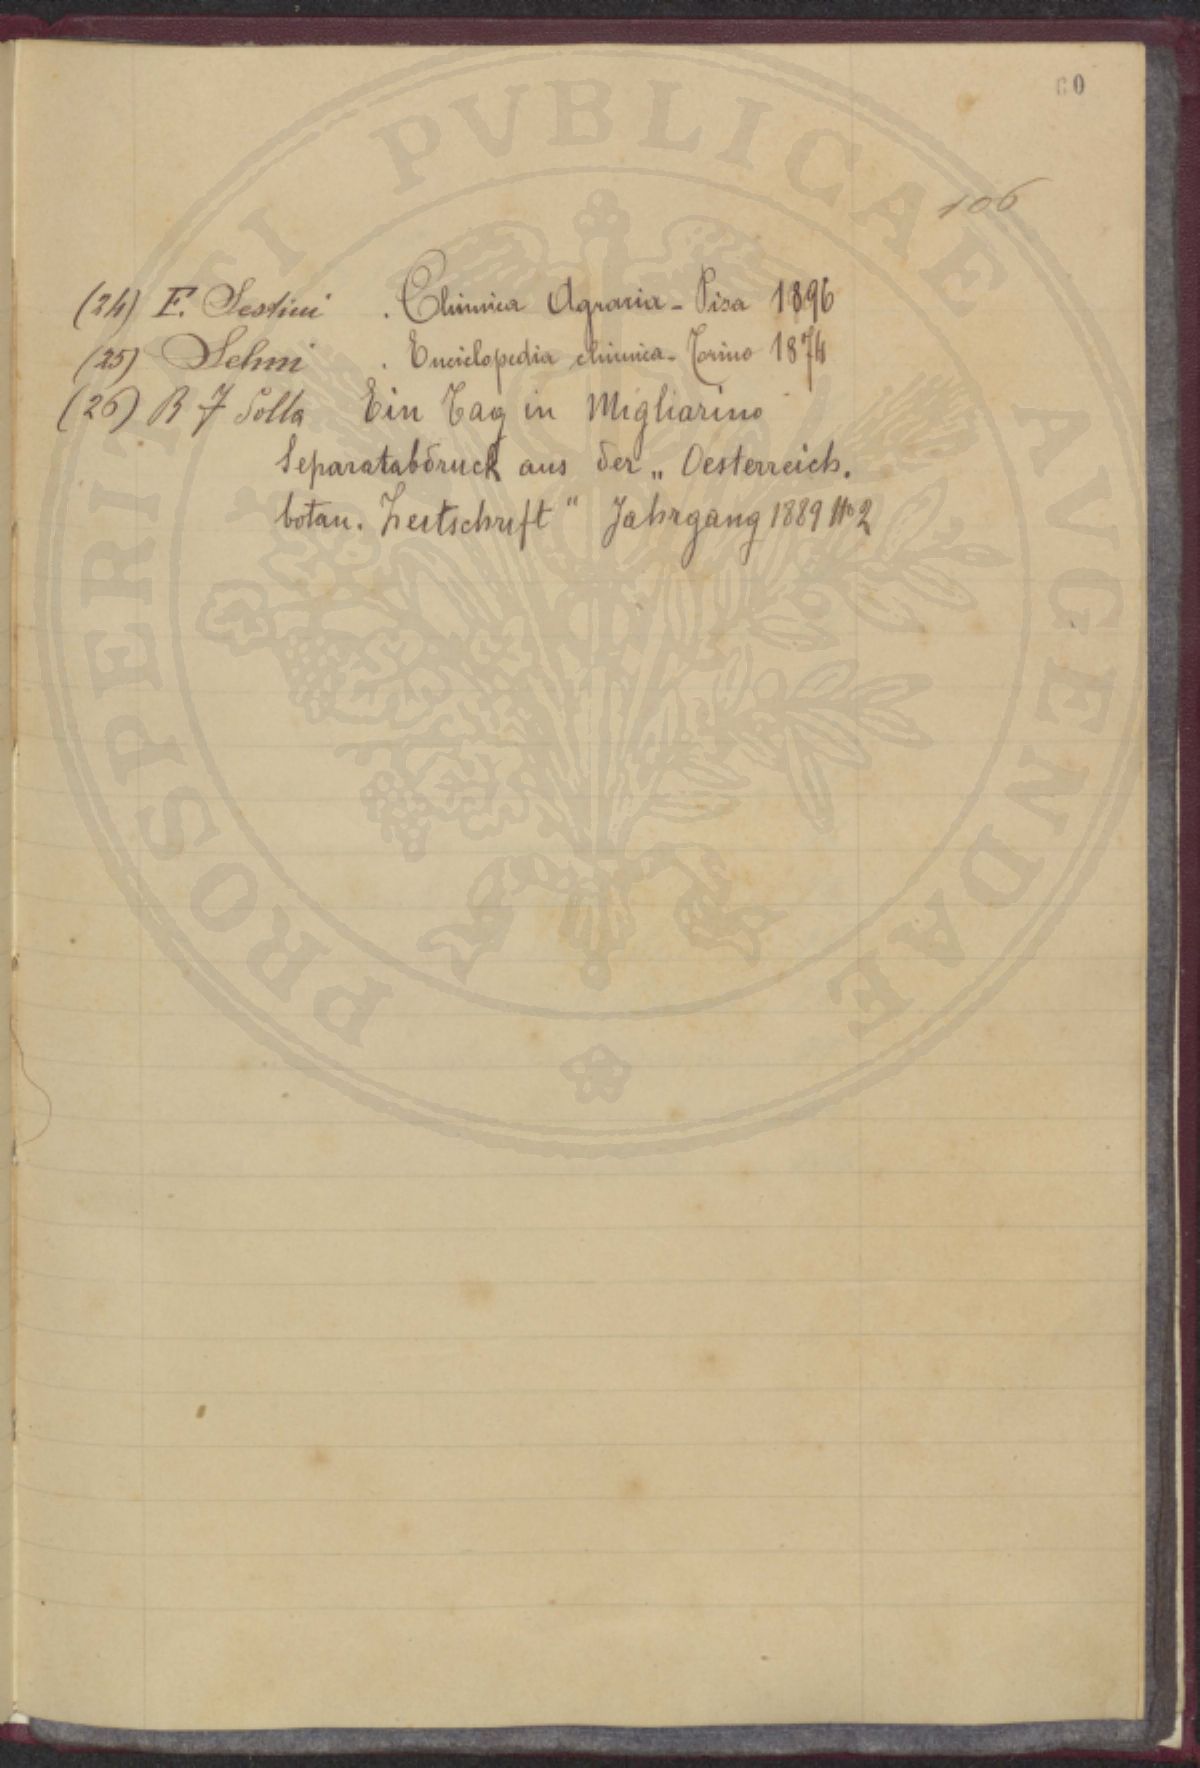 60
106
(24) F. Sestini . Chimica Agraria - Pisa 1896
(25) Selmi . Enciclopedia chimica - Torino 1874
(26) R F Solla Ein Tag in Migliarino
Separatabdruck aus der „ Oesterreich.
botan. Zeitschrift " Jahrgang 1889 No 2
PROSPERITATI PVBLICAE AVGENDAE